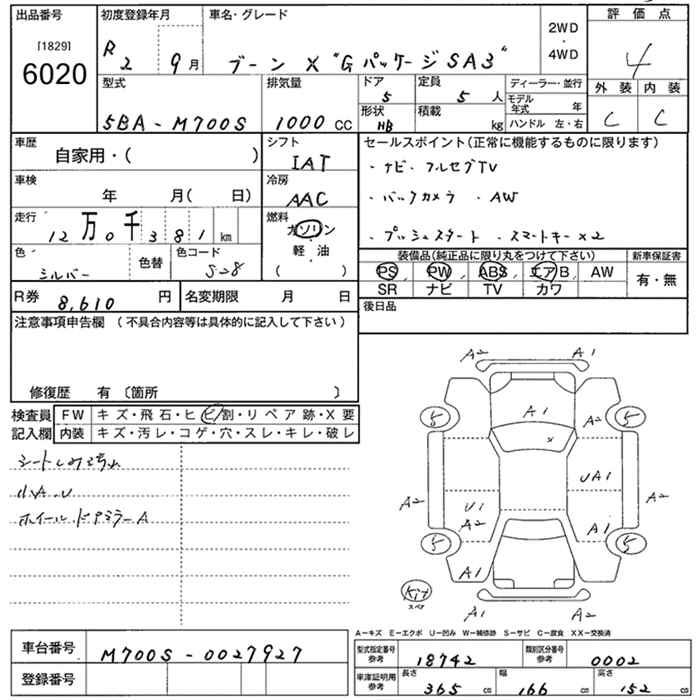 出品番号 初度登録年月 車名・グレード 評価点
[1829]
6020
R2 9月 ブーン X "GパッケージSA3" 2WD・4WD 4
型式 排気量 ドア 定員 ディーラー・並行 外装 内装
5 5人 モデル年式 年
5BA-M700S 1000cc 形状 HB 積載 kg ハンドル 左・右 C C
車歴 シフト セールスポイント(正常に機能するものに限ります)
自家用・( ) IAT ・ナビ・フルセグTV
車検 冷房
年 月( 日) AAC ・バックカメラ ・AW
走行 燃料
12万0千381km ガソリン ・プッシュスタート ・スマートキー×2
色 色替 色コード 軽・油 装備品(純正品に限り丸をつけて下さい) 新車保証書
シルバー S28 ( ) PS PW ABS エアB AW 有・無
R券 8,610円 名変期限 月 日 SR ナビ TV カワ
注意事項申告欄(不具合内容等は具体的に記入して下さい) 後日品
修復歴 有〔箇所 〕
検査員 FW キズ・飛石・ヒビ・割・リペア跡・X要
記入欄 内装 キズ・汚レ・コゲ・穴・スレ・キレ・破レ
小A.U
ホイール.ドアミラーA
A2 A1
A1
5 A2 5
UA1
A2 A2
U1
A2 A1
5 5
A1
Kit
スペア
A1 A2
A－キズ E－エクボ U－凹み W－補修跡 S－サビ C－腐食 XX－交換済
車台番号 M700S-0027927
登録番号
型式指定番号 参考 18742 類別区分番号 参考 0002
車庫証明用 参考 長さ 365cm 幅 166cm 高さ 152cm